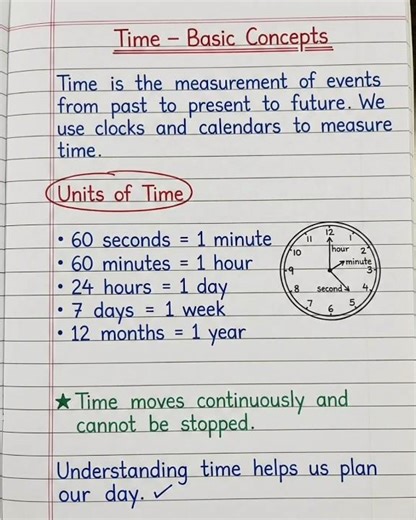 Time – Basic Concepts
Time is the measurement of events
from past to present to future. We
use clocks and calendars to measure
time.
Units of Time
• 60 seconds = 1 minute
• 60 minutes = 1 hour
• 24 hours = 1 day
• 7 days = 1 week
• 12 months = 1 year
12
11 1
hour
10 2
minute
9 3
second
8 4
7 5
6
★ Time moves continuously and
cannot be stopped.
Understanding time helps us plan
our day. ✓